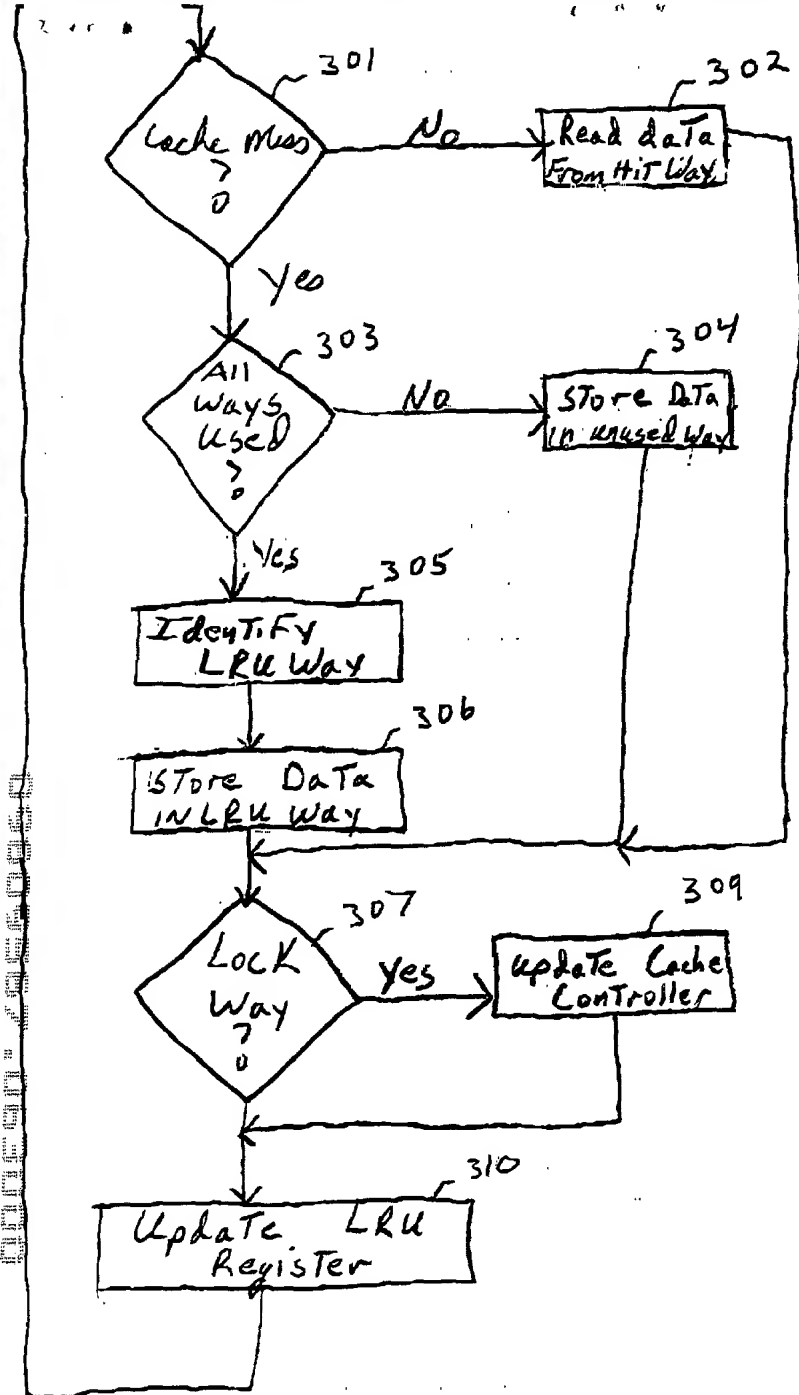 301
Cache Miss
?
No
302
Read data
From Hit Way
Yes
303
All
Ways
Used
?
No
304
Store Data
in unused Way
Yes
305
Identify
LRU Way
306
Store Data
in LRU Way
307
Lock
Way
?
Yes
309
Update Cache
Controller
310
Update LRU
Register